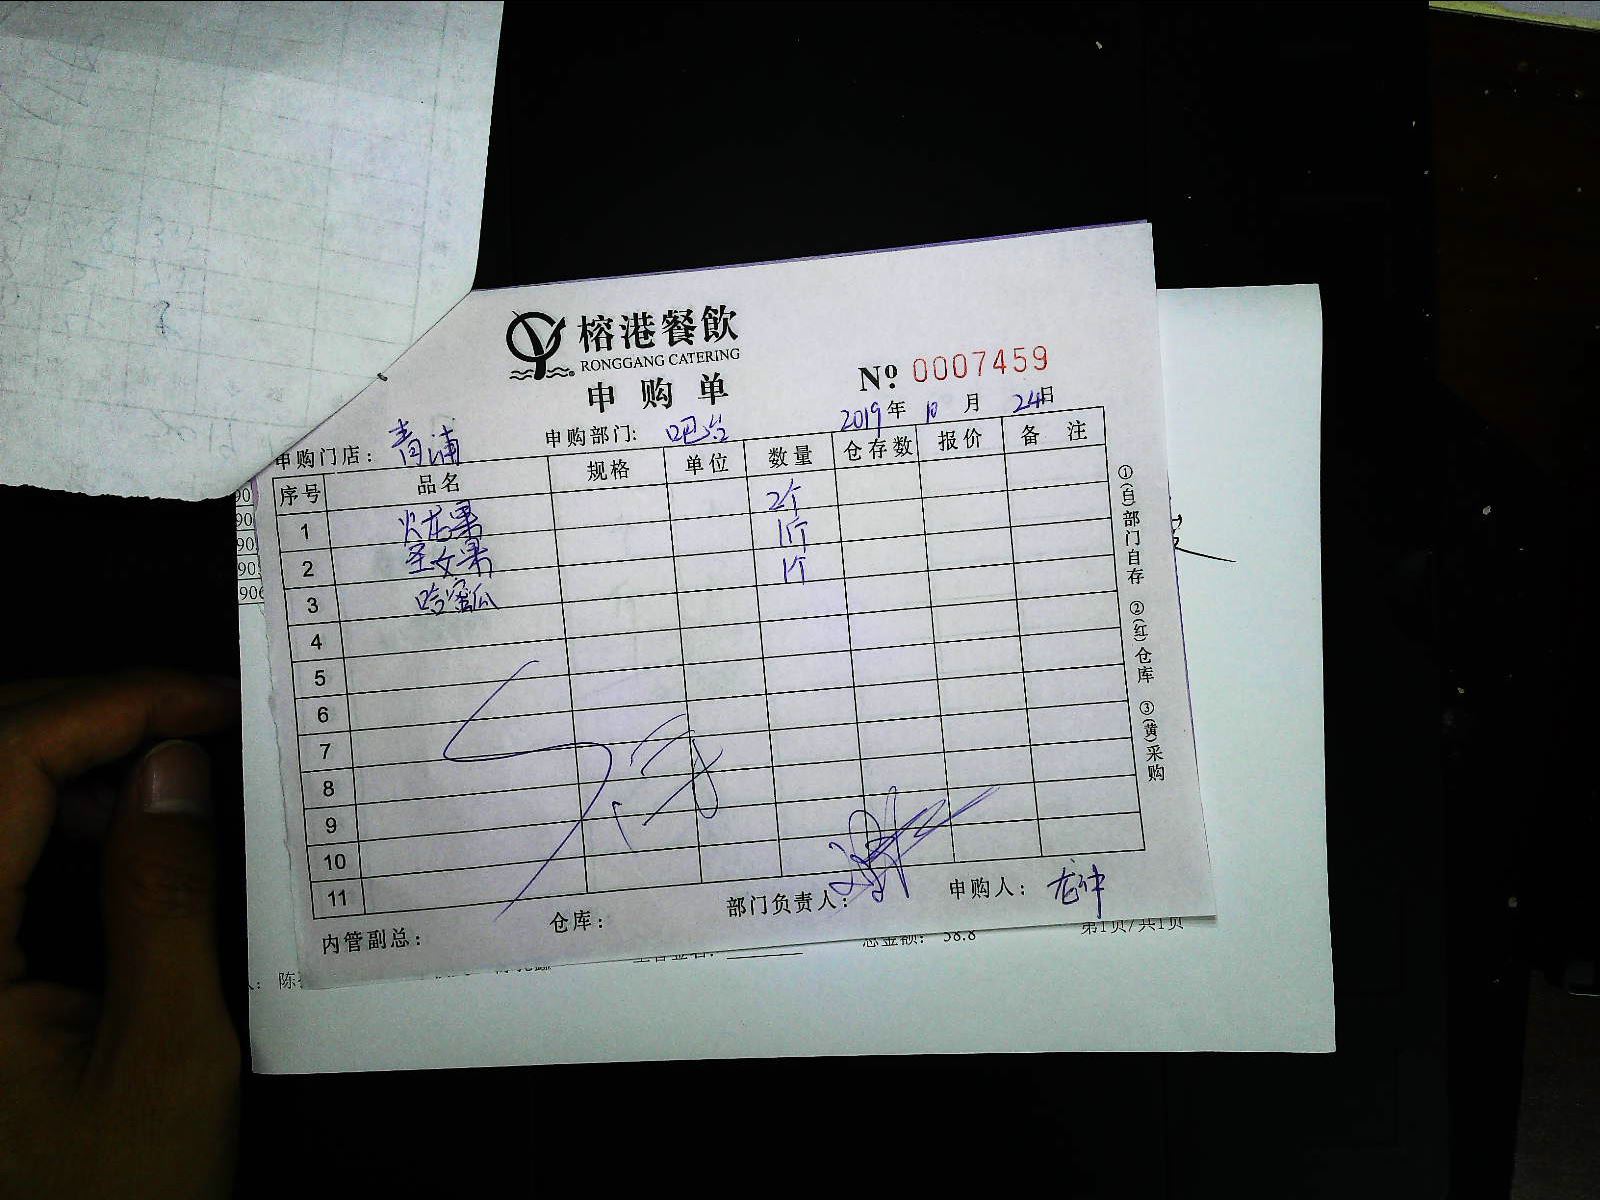 榕港餐飲
RONGGANG CATERING
申购单
№ 0007459
申购门店: 青浦 申购部门: 吧台 2019年10月24日
序号 品名 规格 单位 数量 仓存数 报价 备注
1 火龙果 2个
2 圣女果 1斤
3 哈蜜瓜 1个
4
5
6
7
8
9
10
11
内管副总: 仓库: 部门负责人: 申购人:
①(白)部门自存 ②(红)仓库 ③(黄)采购
90
90
90
90
906
总金额: 58.8 第1页/共1页
陈